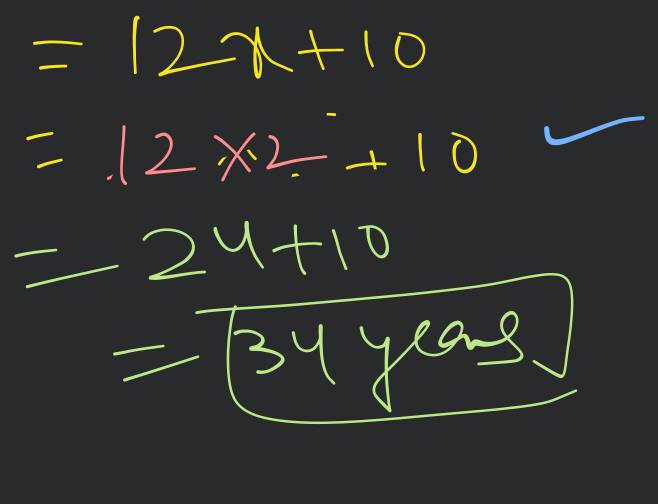 = 12x+10
= 12×2 + 10
= 24+10
= 34 years